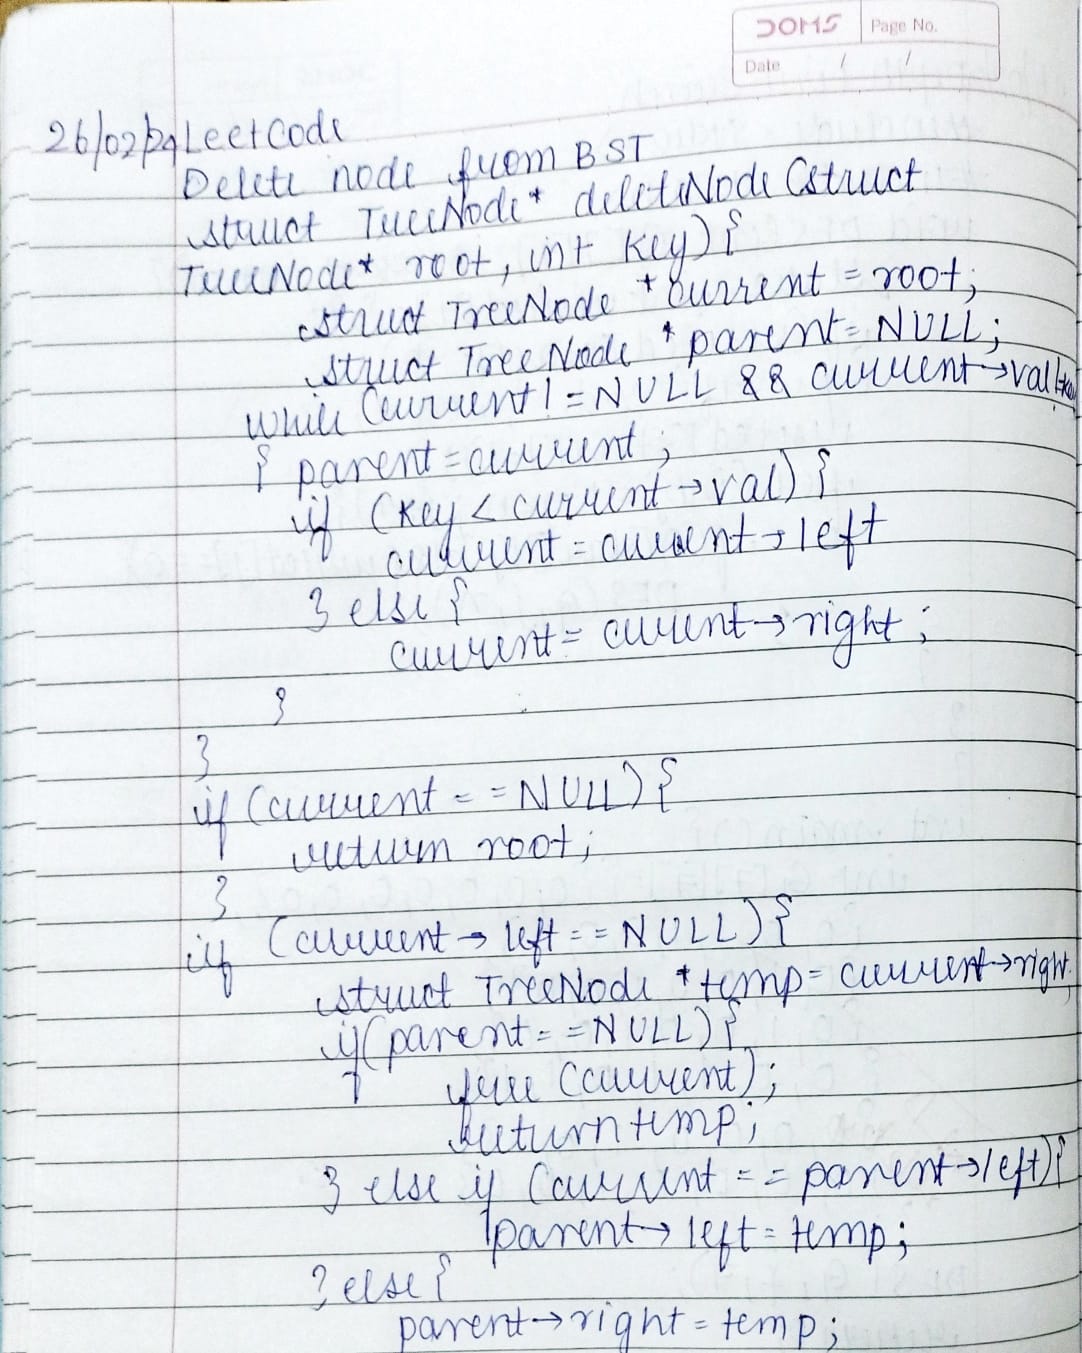 DOMS
Page No.
Date / /
26/02/24 LeetCode
Delete node from BST
struct TreeNode* deleteNode (struct
TreeNode* root, int key) {
struct TreeNode * current = root;
struct TreeNode * parent = NULL;
while (current != NULL && current → val != key
{ parent = current ;
if (key < current → val) {
current = current → left
} else {
current = current → right ;
}
}
if (current == NULL) {
return root;
}
if (current → left == NULL) {
struct TreeNode * temp = current → right;
if (parent == NULL) {
free (current);
return temp;
} else if (current == parent → left) {
parent → left = temp;
} else {
parent → right = temp;